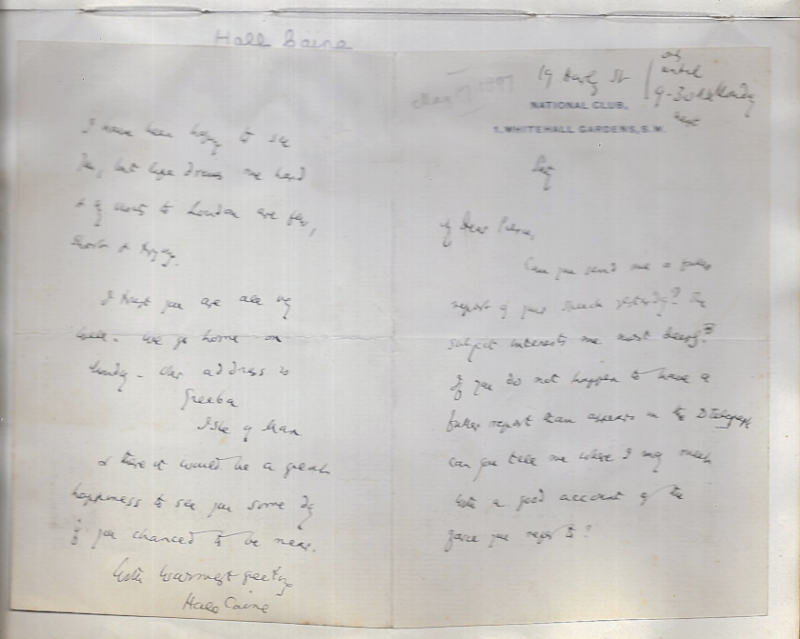 Hall Caine
I have been hoping to see
you, but life draws me hard
& my visits to London are few,
short & trying.
I trust you are all very
well. We go home on
Monday. Our address is
Greeba
Isle of Man
& there it would be a great
happiness to see you some day
if you chanced to be near.
With warmest greetings
Hall Caine
May 1897
19 St
until
9-30 Monday
next
NATIONAL CLUB,
1, WHITEHALL GARDENS, S.W.
My Dear
Can you send me a fuller
report of your speech yesterday? The
subject interests me most deeply.
If you do not happen to have a
fuller report than appears in the D Telegraph
can you tell me where I may meet
with a good account of the
you refer to?